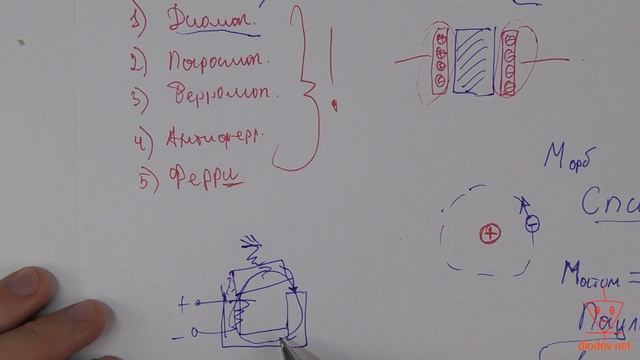 1) Диамаг.
2) Парамаг.
3) Ферромаг.
4) Антиферр.
5) Ферри
!
+
−
+
Mорб
Спи
Mатом =
Паул
diodov.net